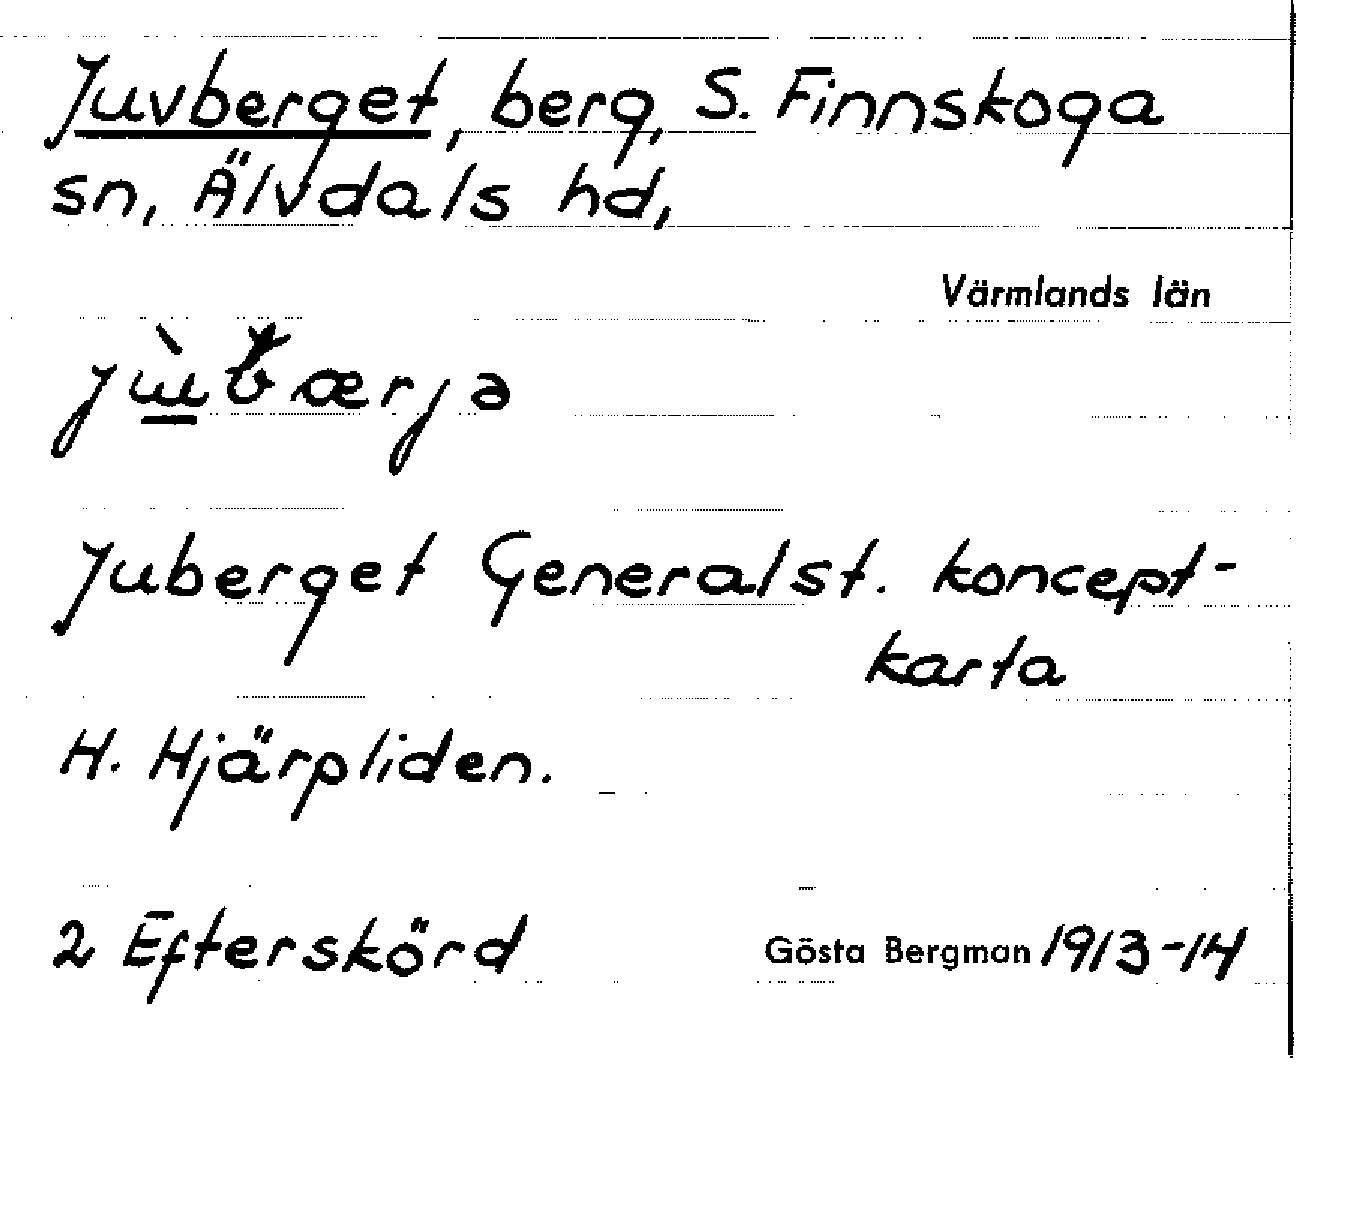 Juvberget, berg, S. Finnskoga
sn, Älvdals hd,
Värmlands län
Juberget Generalst. koncept-
karta
H. Hjärpliden.
2 Efterskörd Gösta Bergman 1913-14